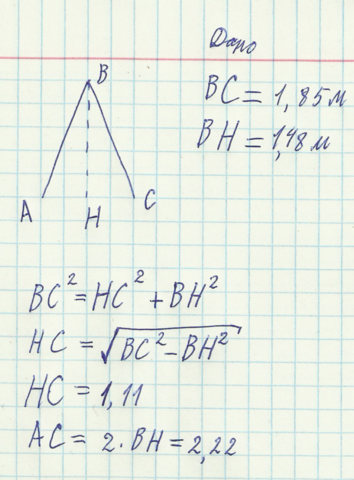 Дано
B
BC = 1,85м
BH = 1,48м
A
H
C
BC² = HC² + BH²
HC = √BC² − BH²
HC = 1,11
AC = 2 · BH = 2,22